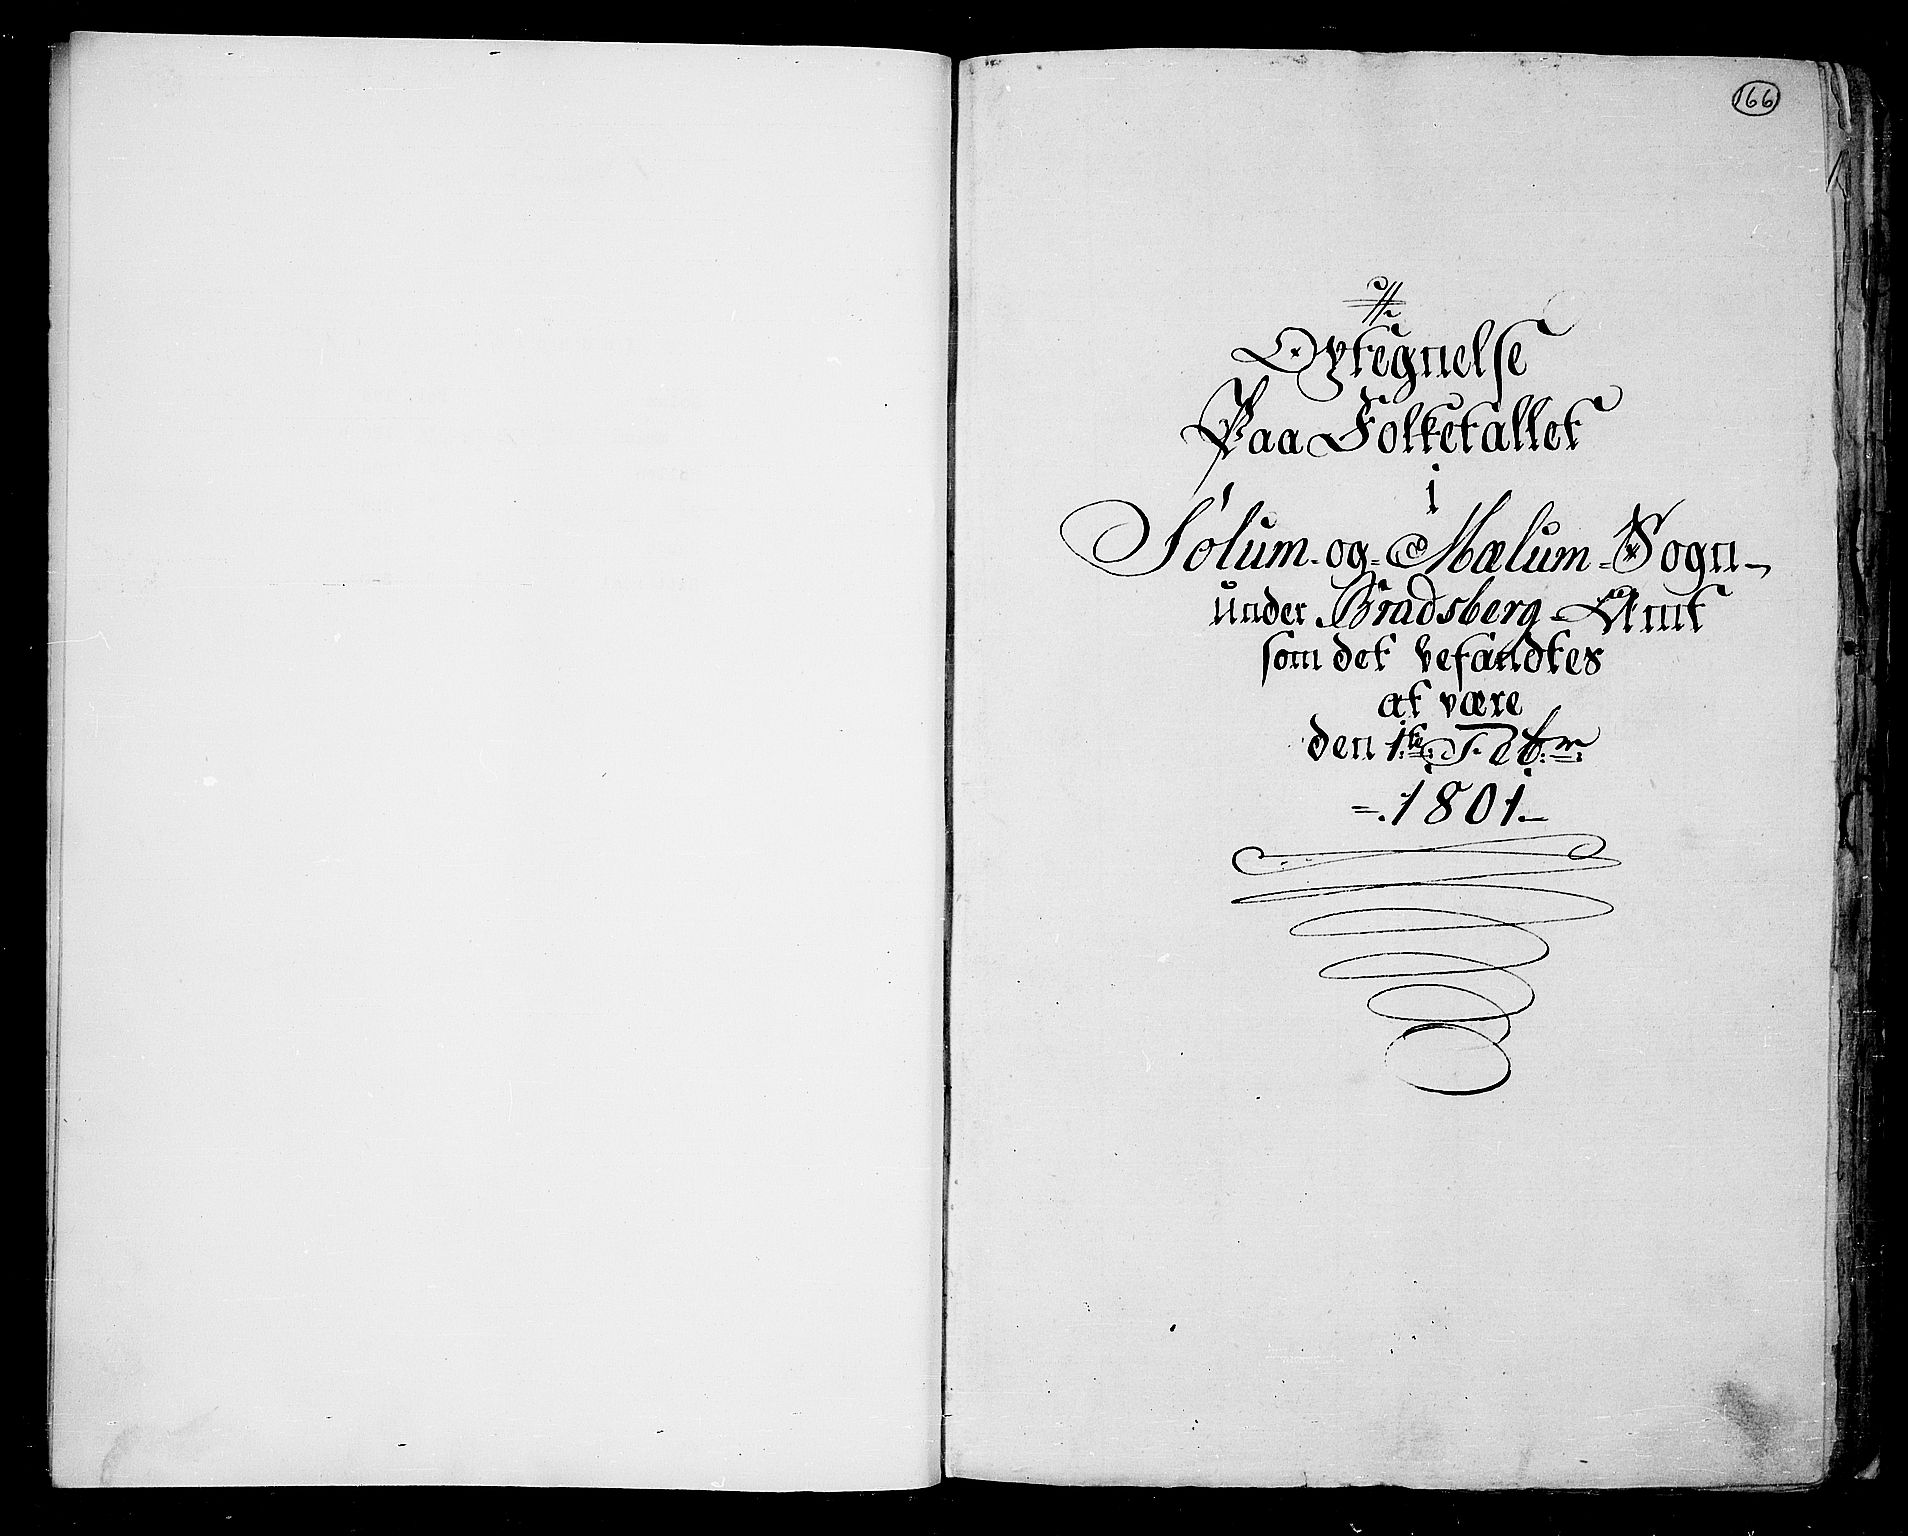 166
Optegnelse
Paa Folketallet
i
Sølum- og= Mælum =Sogn-
under Bradsberg-Amt
som det befandtes
at være
den 1te Febr
=.1801.-